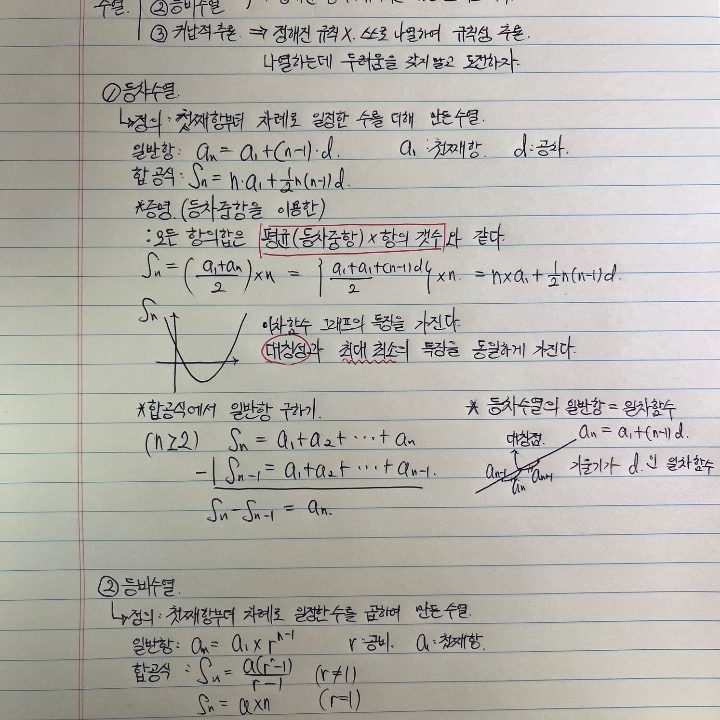 수열. ② 등비수열
③ 귀납적 추론 ⇒ 정해진 규칙 X. 쓰로 나열하여 규칙성 추론.
나열하는데 두려움을 갖지 말고 도전하자.
① 등차수열.
↳ 정의 : 첫째항부터 차례로 일정한 수를 더해 만든 수열.
일반항 : aₙ = a₁+(n-1)·d. a₁ : 첫째항. d : 공차.
합 공식 : Sₙ = n·a₁+½n(n-1)d.
*증명. (등차중항을 이용한)
: 모든 항의합은 평균(등차중항) × 항의 갯수 와 같다.
Sₙ = (a₁+aₙ/2)×n = {a₁+a₁+(n-1)d/2}×n = n×a₁+½n(n-1)d.
Sₙ 이차함수 그래프의 특징을 가진다.
대칭성과 최대 최소의 특징을 동일하게 가진다.
*합공식에서 일반항 구하기. * 등차수열의 일반항 = 일차함수
(n≥2) Sₙ = a₁+a₂+ ··· +aₙ 대칭점. aₙ = a₁+(n-1)d.
-) Sₙ₋₁ = a₁+a₂+ ··· +aₙ₋₁. aₙ₋₁ aₙ aₙ₊₁ 기울기가 d.인 일차함수
Sₙ-Sₙ₋₁ = aₙ.
② 등비수열.
↳ 정의 : 첫째항부터 차례로 일정한 수를 곱하여 만든 수열.
일반항 : aₙ = a₁×rⁿ⁻¹ r : 공비. a₁ : 첫째항.
합공식 : Sₙ = a(rⁿ-1)/r-1 (r≠1)
Sₙ = a×n (r=1)